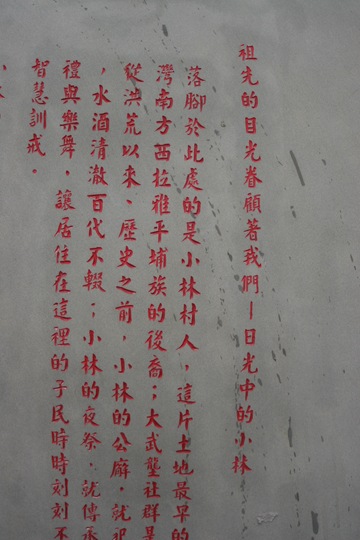 祖先的目光眷顧著我們－日光中的小林
落腳於此處的是小林村人，這片土地最早的
灣南方西拉雅平埔族的後裔；大武壟社群是
從洪荒以來、歷史之前，小林的公廨，就祀
，水酒清澈百代不輟；小林的夜祭，就傳承
禮與樂舞，讓居住在這裡的子民時時刻刻不
智慧訓戒。